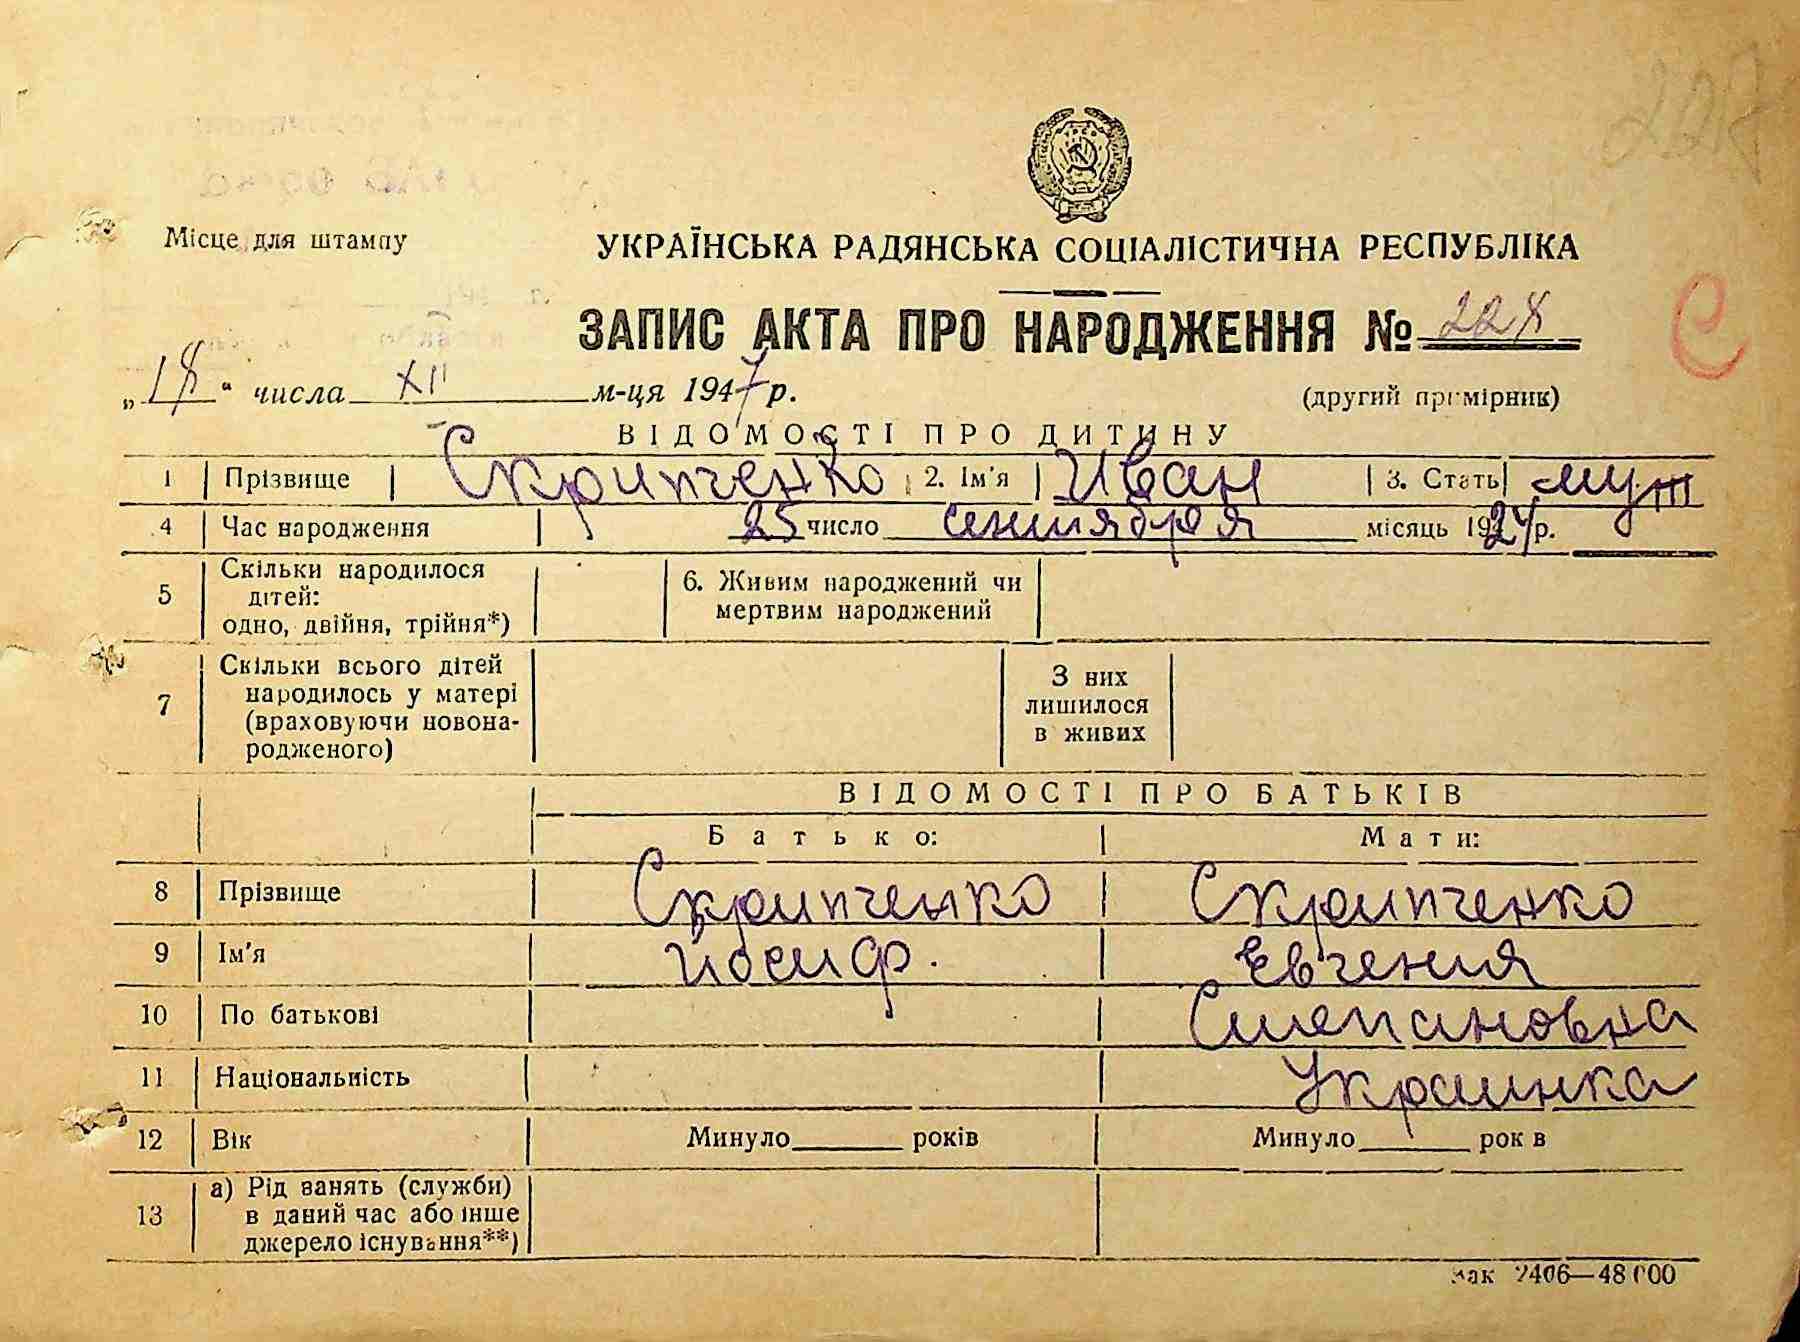 Місце для штампу
УКРАЇНСЬКА РАДЯНСЬКА СОЦІАЛІСТИЧНА РЕСПУБЛІКА
ЗАПИС АКТА ПРО НАРОДЖЕННЯ № 228
С
„18“ числа XII м-ця 1947 р.
(другий примірник)
ВІДОМОСТІ ПРО ДИТИНУ
1 Прізвище Скрипченко 2. Ім'я Иван 3. Стать муж
4 Час народження 25 число сентября місяць 1924 р.
5 Скільки народилося дітей: одно, двійня, трійня*) 6. Живим народжений чи мертвим народжений
7 Скільки всього дітей народилось у матері (враховуючи новонародженого) З них лишилося в живих
ВІДОМОСТІ ПРО БАТЬКІВ
Батько: Мати:
8 Прізвище Скрипченко Скрипченко
9 Ім'я Йосиф. Евгения
10 По батькові Степановна
11 Національність Украинка
12 Вік Минуло років Минуло рок в
13 а) Рід занять (служби) в даний час або інше джерело існування**)
зак 2406—48000